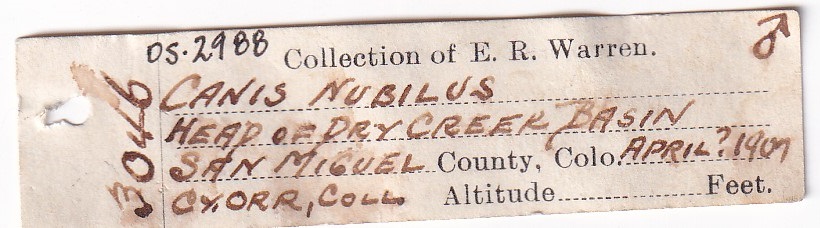 OS-2988
Collection of E. R. Warren. ♂
3046
CANIS NUBILUS
HEAD OF DRY CREEK BASIN
SAN MIGUEL County, Colo. APRIL?.1907
CY. ORR, COLL. Altitude Feet.